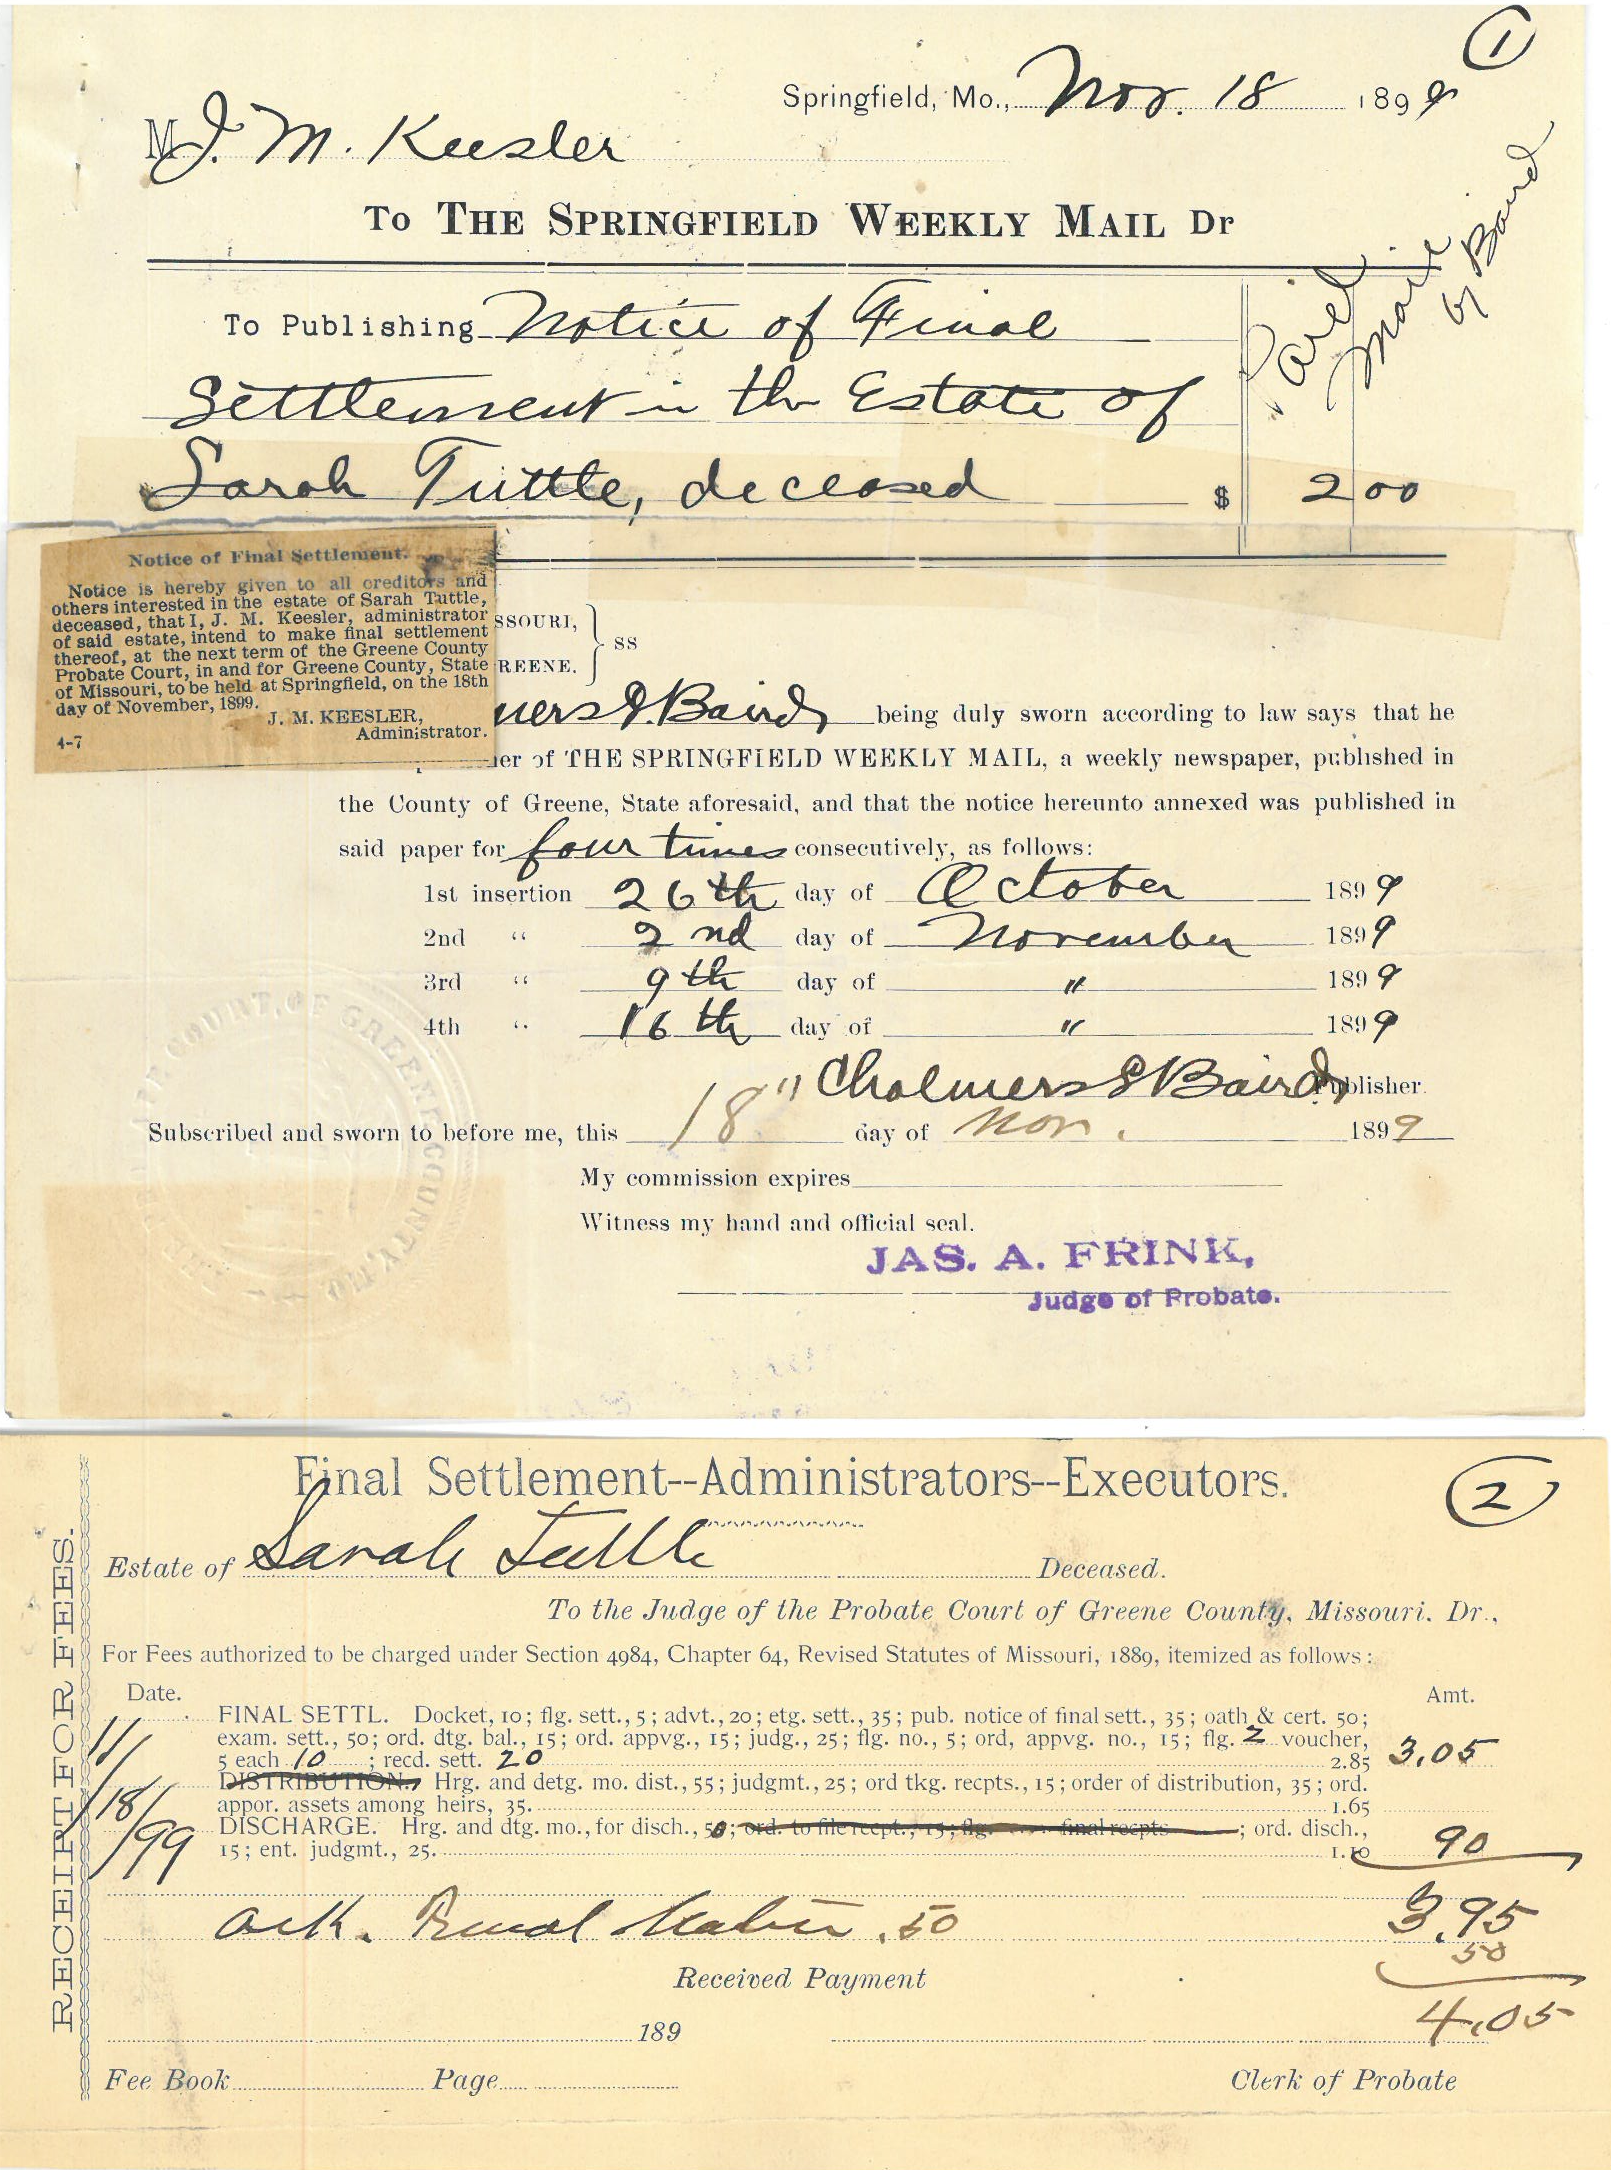 1
Springfield, Mo., Nov. 18 1899
M J. M. Keesler
TO THE SPRINGFIELD WEEKLY MAIL Dr
To Publishing Notice of Final
Settlement in the Estate of
Sarah Tuttle, deceased $ 2 00
Paid
Mail
by Baird
Notice of Final Settlement.
Notice is hereby given to all creditors and
others interested in the estate of Sarah Tuttle,
deceased, that I, J. M. Keesler, administrator
of said estate, intend to make final settlement
thereof, at the next term of the Greene County
Probate Court, in and for Greene County, State
of Missouri, to be held at Springfield, on the 18th
day of November, 1899.
J. M. KEESLER,
Administrator.
4-7
SSOURI,
REENE. } ss
mers S. Baird being duly sworn according to law says that he
er of THE SPRINGFIELD WEEKLY MAIL, a weekly newspaper, published in
the County of Greene, State aforesaid, and that the notice hereunto annexed was published in
said paper for four times consecutively, as follows:
1st insertion 26th day of October 1899
2nd " 2nd day of November 1899
3rd " 9th day of " 1899
4th " 16th day of " 1899
Chalmers S Baird Publisher.
Subscribed and sworn to before me, this 18" day of Nov. 1899
My commission expires
Witness my hand and official seal.
JAS. A. FRINK,
Judge of Probate.
COURT OF GREENE COUNTY, MO
Final Settlement--Administrators--Executors.
2
RECEIPT FOR FEES.
Estate of Sarah Tuttle Deceased.
To the Judge of the Probate Court of Greene County, Missouri. Dr.,
For Fees authorized to be charged under Section 4984, Chapter 64, Revised Statutes of Missouri, 1889, itemized as follows:
Date. Amt.
11/18/99
FINAL SETTL. Docket, 10; flg. sett., 5; advt., 20; etg. sett., 35; pub. notice of final sett., 35; oath & cert. 50;
exam. sett., 50; ord. dtg. bal., 15; ord. appvg., 15; judg., 25; flg. no., 5; ord, appvg. no., 15; flg. 2 voucher,
5 each 10; recd. sett. 20 2.85 3.05
DISTRIBUTION. Hrg. and detg. mo. dist., 55; judgmt., 25; ord tkg. recpts., 15; order of distribution, 35; ord.
appor. assets among heirs, 35. 1.65
DISCHARGE. Hrg. and dtg. mo., for disch., 50; ord. to file recpt., 15; flg. final recpts ; ord. disch.,
15; ent. judgmt., 25. 1.10 90
3.95
.50
50
Received Payment
4.05
189
Fee Book Page Clerk of Probate